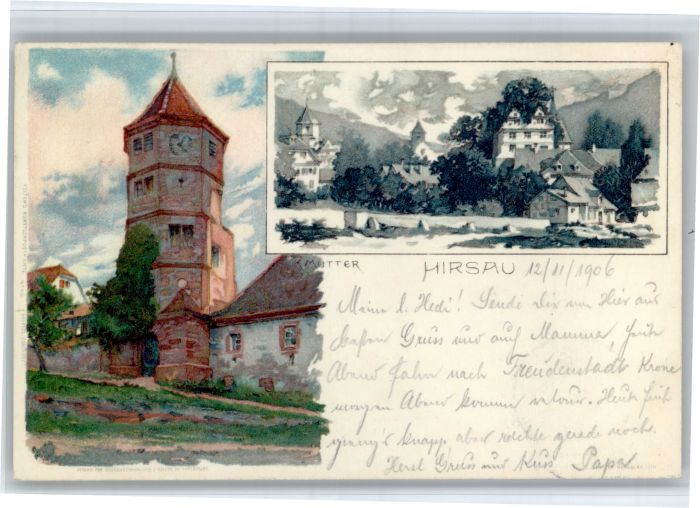 MUTTER HIRSAU 12/11/1906
Meine l. Hedi! Sende dir von Hier aus
Gruss und auf Mamma, früh
Abend fahre nach Freudenstadt Krone
morgen Abend komme retour. Heute früh
ging's knapp aber reichte gerade noch.
Herzl Gruss und Kuss Papa